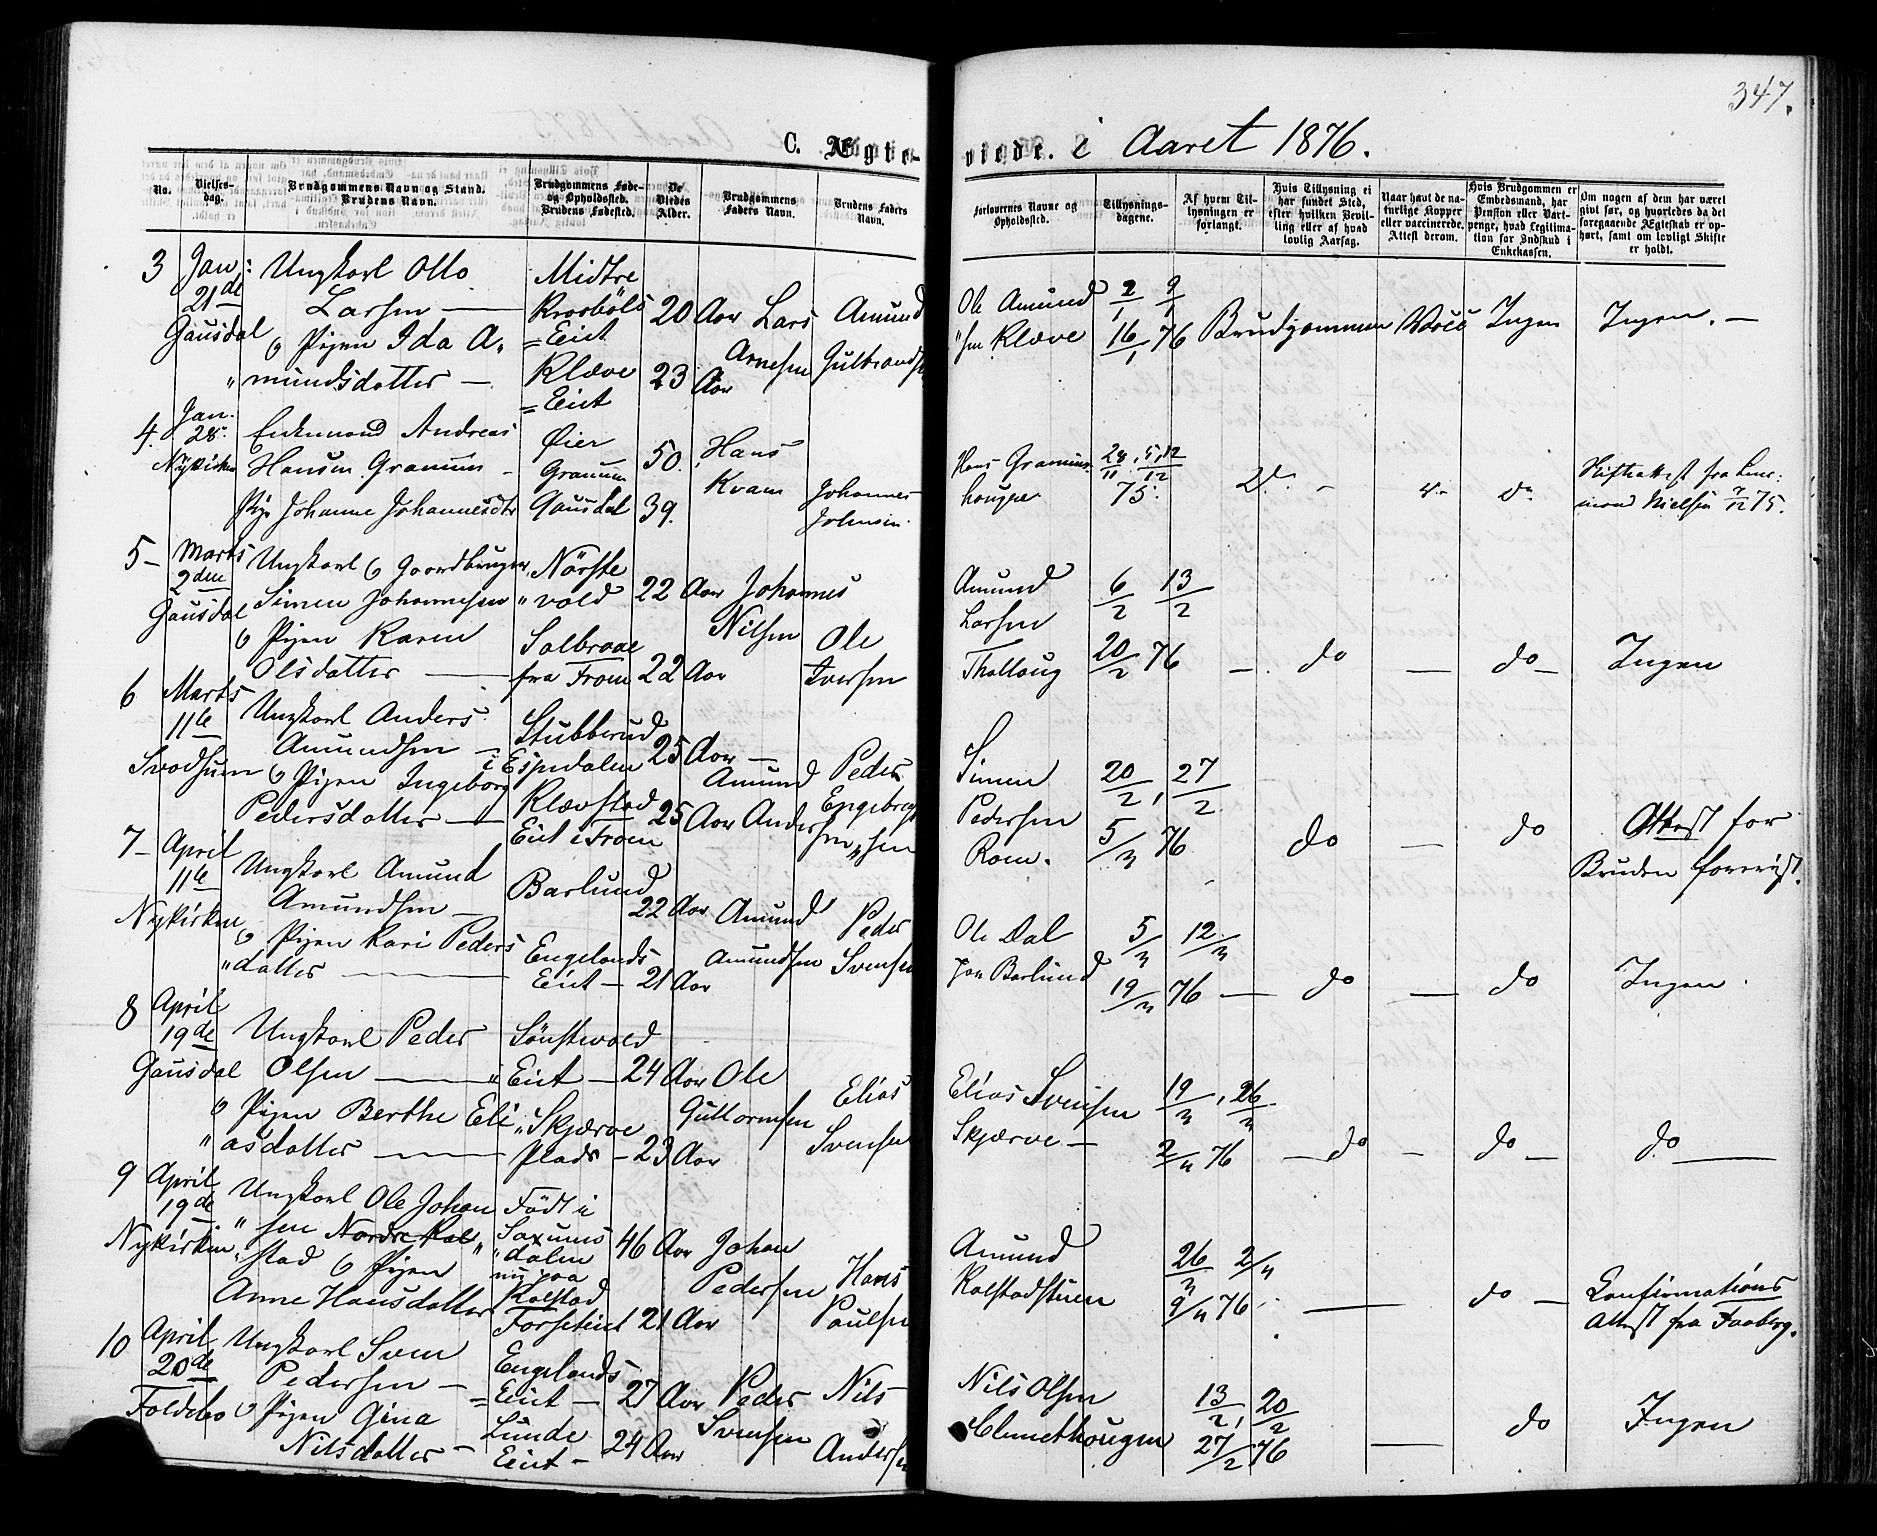 347.
C. Ægte-
viede. i Aaret 1876.
No.
Vielses-
dag.
Brudgommens Navn og Stand.
Brudens Navn.
Brudgommens Føde-
og Opholdssted.
Brudens Fødested.
De
Viedes
Alder.
Brudgommens
Faders Navn.
Brudens Faders
Navn.
Forlovernes Navne og
Opholdssted.
Tillysnings-
dagene.
Af hvem Til-
lysningen er
forlangt.
Hvis Tillysning ei
har fundet Sted,
efter hvilken Bevil-
ling eller af hvad
lovlig Aarsag.
Naar havt de na-
turlige Kopper
eller vaccinerede.
Attest derom.
Hvis Brudgommen er
Embedsmand, har
Pension eller Vart-
penge, hvad Legitima-
tion for Indskud i
Enkekassen.
Om nogen af dem har været
givt før, og hvorledes da det
foregaaende Ægteskab er op-
hørt, samt om lovligt Skifte
er holdt.
3
Jan:
21de
Gausdal
Ungkarl Otto
Larsen —
og Pigen Ida A„
„mundsdatter —
Midtre
Kroobøls
=Eiet
Klæve
=Eiet
20 Aar
23
Aar
Lars
Arnesen
Amund
Gulbrands
Ole Amund
„sen Klæve
2/1 9/1
16/1 76
Brudgommen
Vacc
Ingen
Ingen. —
4.
Jan.
28.
Nykirken
Enkemand Andreas
Hansen Granum -
Pige Johanne Johannesdtr
Øier
Granum
Gausdal
50.
39.
Hans
Kvam
Johannes
Johnsen.
Hans Granum
haugen
28/11. 5,12/12
75.
d. -
d.
do
Skiftattest fra Lens:
mand Nielsen 7/12 75.
5 —
Marts
2den
Gausdal
Ungkarl og Gaardbruger
Simen Johannesen
og Pigen Karen
Olsdatter —
Nörste
„vold
Solbraae
fra From
22 Aar
22 Aar
Johannes
Nilsen
Ole
Iversen
Amund
Larsen
Thallaug
6/2 13/2
20/2 76
— do
— do —
Ingen
6
Marts
11te
Svadsum
Ungkarl Anders
Amundsen —
og Pigen Ingeborg
Pedersdatter —
Stubberud
i Espedalen
Klævstad
Eiet i From
25 Aar —
25 Aar
Amund
Andersen
Peder
Engebregt
„sen
Simen
Pedersen
Rom.
20/2, 27/2
5/3 76
do
—
do
Attest for
Bruden foreviist.
7 —
April
11te
Nykirken
Ungkarl Amund
Amundsen —
og Pigen Kari Peders
„datter —
Barlund
Engelands
Eiet —
22 Aar
21 Aar
Amund
Amundsen
Peder
Svensen
Ole Dal
Jon Barlund
5/3 12/3
19/3 76
— do
— do
Ingen.
8
April
19de
Gausdal
Ungkarl Peder
Olsen —
og Pigen Berthe Eli
„asdatter —
Sönstevold
„Eiet —
„Skjærve
Plads —
24 Aar
23 Aar
Ole
Guttormsen
Elias
Svensen
Elias Svensen
Skjærve —
19/3, 26/3
2/4 76
— do
— do —
do. —
9
April
19de
Nykirken
Ungkarl Ole Johan
„sen Nordre Kal„
„stad og Pigen
Anne Hansdatter
Födt i
Saxums
„dalen
nu paa
Kalstad
Forseteiet
46 Aar
21 Aar
Johan
Pedersen
Hans
Paulsen
Amund
Kalstadstuen
26/3 2/4
9/4 76
—
do —
Confirmations
Attest fra Faaberg.
10
April
20de
Foldebo
Ungkarl Sven
Pedersen —
og Pigen Gina
Nilsdatter —
Engelands
=Eiet —
Lunde
Eiet —
27 Aar
24 Aar
Peder
Svensen
Nils
Anders
Nils Olsen
13/2, 20/2
27/2 76
—
do
Ingen